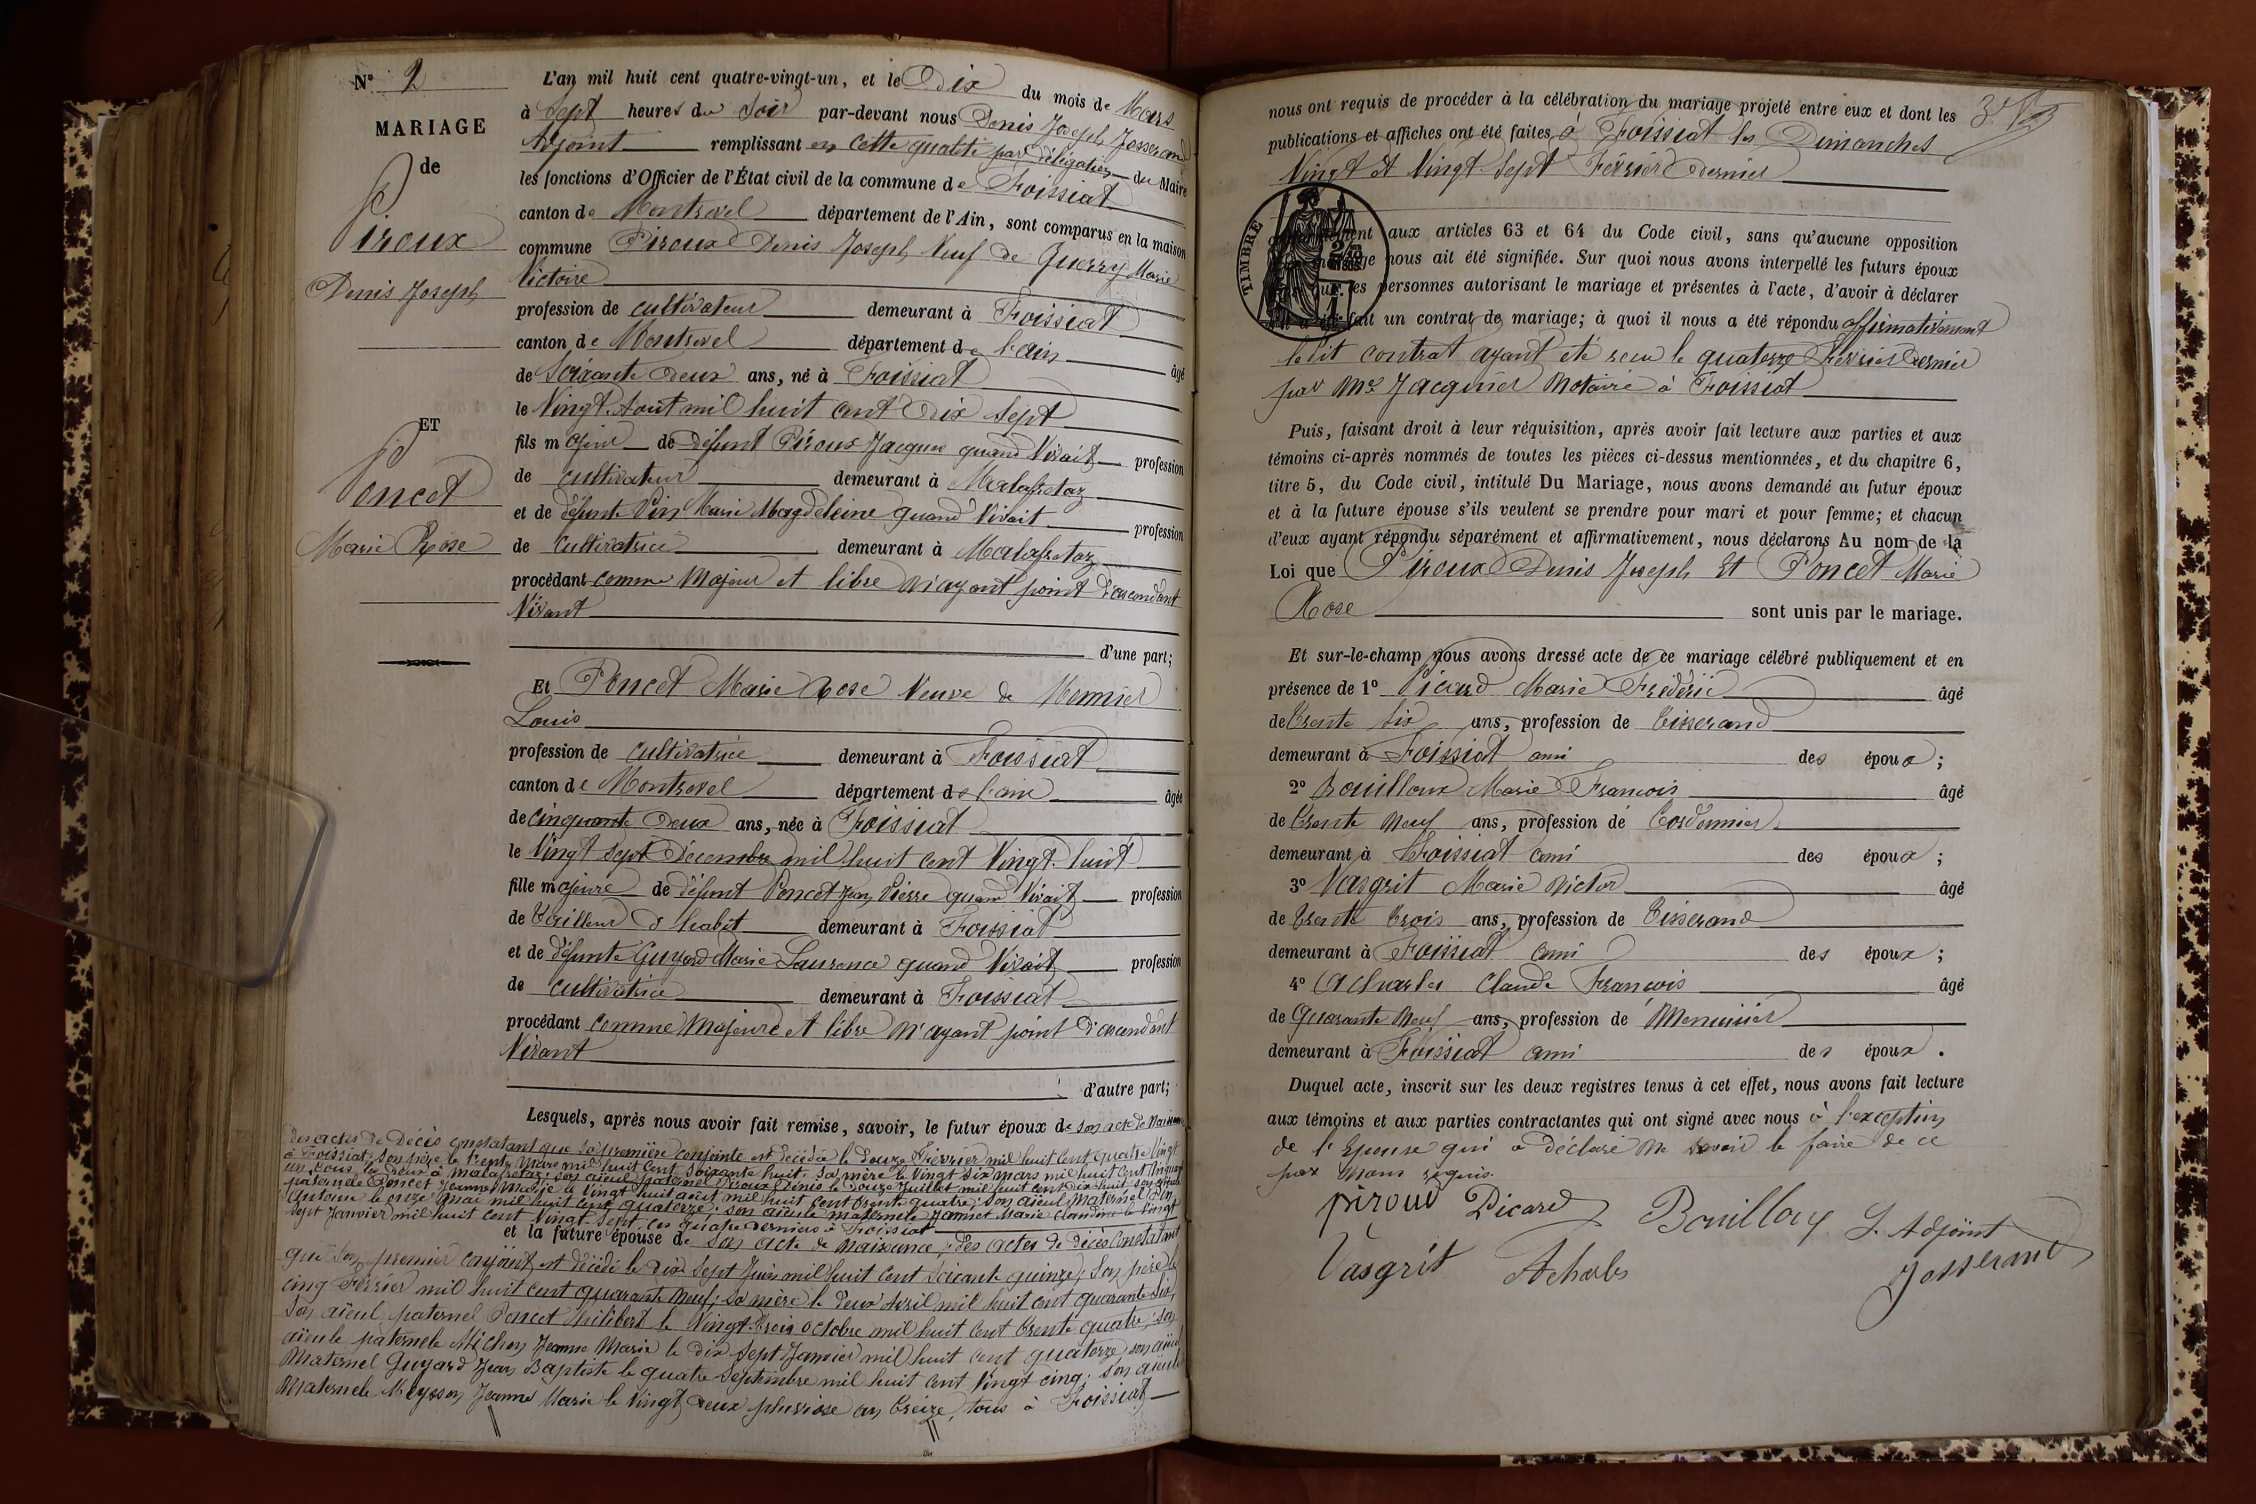 N° 2
MARIAGE
de
Piroux
Denis Joseph
ET
Poncet
Marie Rose
L'an mil huit cent quatre-vingt-un, et le Dix du mois de Mars
à Sept heures du Soir par-devant nous Denis Joseph Josserand
Adjoint remplissant en cette qualité par délégation du Maire
les fonctions d'Officier de l'État civil de la commune de Foissiat
canton de Montrevel département de l'Ain, sont comparus en la maison
commune Piroux Denis Joseph Veuf de Guerry Marie
Victoire
profession de cultivateur demeurant à Foissiat
canton de Montrevel département de l'ain âgé
de Soixante Deux ans, né à Foissiat
le Vingt Aout mil huit cent Dix Sept
fils majeur de défunt Piroux Jacques quand Vivait profession
de cultivateur demeurant à Malafretaz
et de défunte Pin Marie Magdeleine quand Vivait profession
de cultivatrice demeurant à Malafretaz
procédant comme Majeur et libre n'ayant point d'ascendant
Vivant
d'une part;
Et Poncet Marie Rose Veuve de Monnier
Louis
profession de cultivatrice demeurant à Foissiat
canton de Montrevel département de l'ain âgée
de Cinquante Deux ans, née à Foissiat
le Vingt Sept Décembre mil huit cent Vingt huit
fille majeure de défunt Poncet Jean Pierre quand Vivait profession
de Tailleur d'habit demeurant à Foissiat
et de défunte Guyard Marie Laurence quand Vivait profession
de cultivatrice demeurant à Foissiat
procédant comme Majeure et libre n'ayant point d'ascendant
Vivant
d'autre part;
Lesquels, après nous avoir fait remise, savoir, le futur époux de son acte de Naissance
Des actes de Décès constatant que sa première conjointe est décédée le Douze Février mil huit cent quatre Vingt
à Foissiat; son père le trente Mars mil huit cent Soixante huit; sa mère le Vingt Six Mars mil huit cent Cinquante
un, tous les deux à Malafretaz; son aïeul paternel Piroux Denis le Douze Juillet mil huit cent dix huit; son aïeule
paternele Poncet Jeanne Marie le Vingt huit août mil huit cent trente quatre; son aïeul maternel Pin
Antoine le onze Mai mil huit cent quatorze; son aïeule maternele Jannet Marie Claudine le Vingt
Sept Janvier mil huit cent Vingt Sept, ces quatre derniers à Foissiat
et la future épouse de son acte de Naissance, Des actes de décès Constatant
que son premier conjoint est décédé le Dix Sept Juin mil huit cent Soixante quinze; son père le
cinq Février mil huit cent quarante Neuf; sa mère le deux Avril mil huit cent quarante Six;
son aïeul paternel Poncet Philibert le Vingt Trois octobre mil huit cent trente quatre; son
aïeule paternele Michon Jeanne Marie le dix sept Janvier mil huit cent quatorze, son aïeul
Maternel Guyard Jean Baptiste le quatre Septembre mil huit cent Vingt cinq; son aïeule
Maternele Meysson Jeanne Marie le Vingt Deux pluviose an treize, tous à Foissiat
nous ont requis de procéder à la célébration du mariage projeté entre eux et dont les
publications et affiches ont été faites à Foissiat les Dimanches
Vingt et Vingt Sept Février dernier
TIMBRE
aux articles 63 et 64 du Code civil, sans qu'aucune opposition
nous ait été signifiée. Sur quoi nous avons interpellé les futurs époux
les personnes autorisant le mariage et présentes à l'acte, d'avoir à déclarer
fait un contrat de mariage; à quoi il nous a été répondu affirmativement
ledit contrat ayant été recu le quatorze Février dernier
par Me Jacquier Notaire à Foissiat
Puis, faisant droit à leur réquisition, après avoir fait lecture aux parties et aux
témoins ci-après nommés de toutes les pièces ci-dessus mentionnées, et du chapitre 6,
titre 5, du Code civil, intitulé Du Mariage, nous avons demandé au futur époux
et à la future épouse s'ils veulent se prendre pour mari et pour femme; et chacun
d'eux ayant répondu séparément et affirmativement, nous déclarons Au nom de la
Loi que Piroux Denis Joseph Et Poncet Marie
Rose sont unis par le mariage.
Et sur-le-champ nous avons dressé acte de ce mariage célébré publiquement et en
présence de 1° Picard Marie Frédéric âgé
de Trente Six ans, profession de Tisserand
demeurant à Foissiat ami des époux;
2° Bouilloux Marie Francois âgé
de Trente Neuf ans, profession de Cordonnier
demeurant à Foissiat ami des époux;
3° Vasgrit Marie Victor âgé
de Trente Trois ans, profession de Tisserand
demeurant à Foissiat ami des époux;
4° Acharles Claude François âgé
de Quarante Neuf ans, profession de Menuisier
demeurant à Foissiat ami des époux.
Duquel acte, inscrit sur les deux registres tenus à cet effet, nous avons fait lecture
aux témoins et aux parties contractantes qui ont signé avec nous à l'exception
de l'Epouse qui a déclaré ne savoir le faire de ce
par Nous requis
piroud Picard Bouilloux L. Adjoint
Vasgrit Acharles Josserand